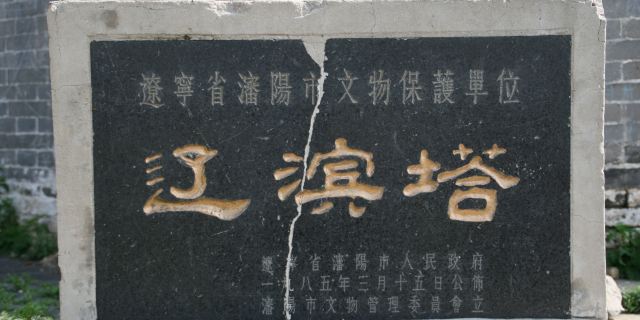 遼寧省瀋陽市文物保護單位
辽滨塔
遼寧省瀋陽市人民政府
一九八五年三月十五日公佈
瀋陽市文物管理委員會立